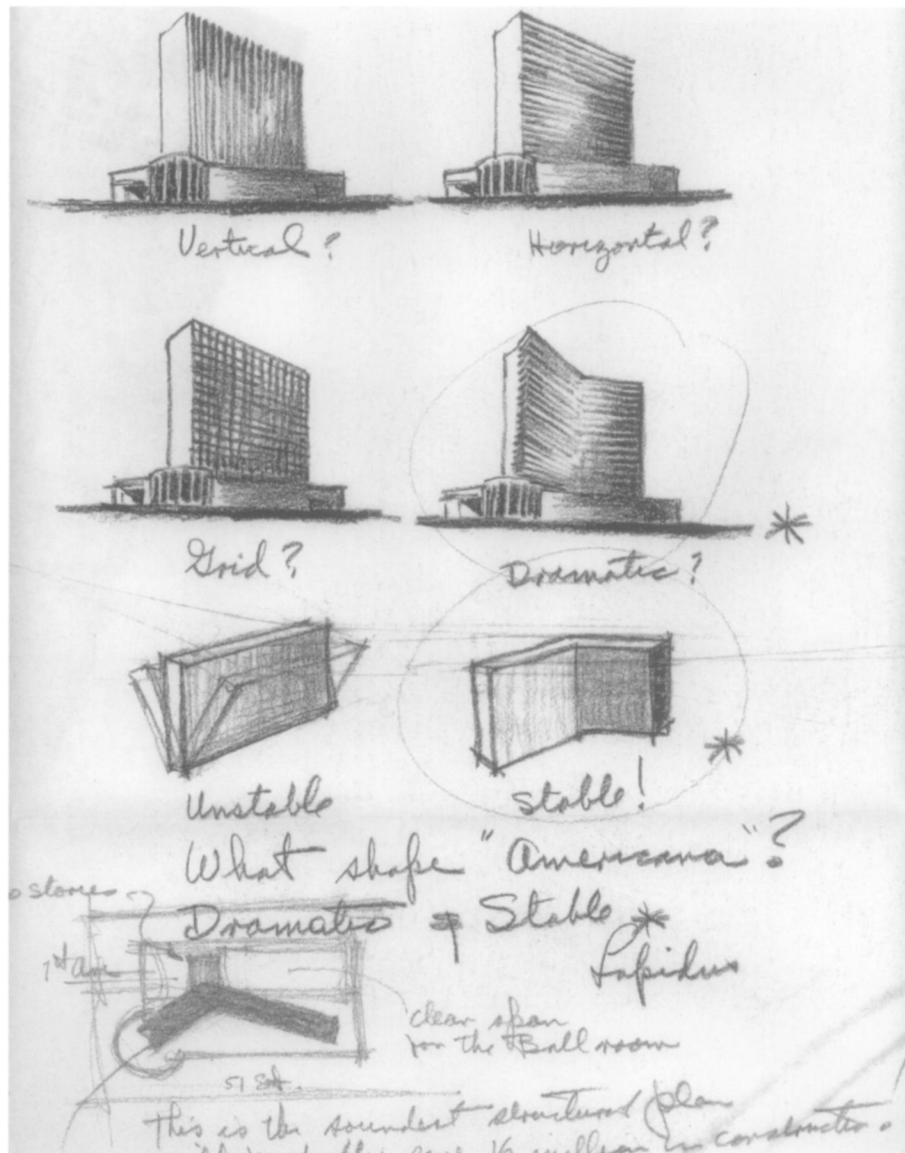 Vertical?
Horizontal?
Grid?
Dramatic?
Unstable
Stable!
What shape "Americana"?
Dramatic & Stable
Lapidus
stories
clear span
for the Ball room
This is the soundest structural plan
million in construction